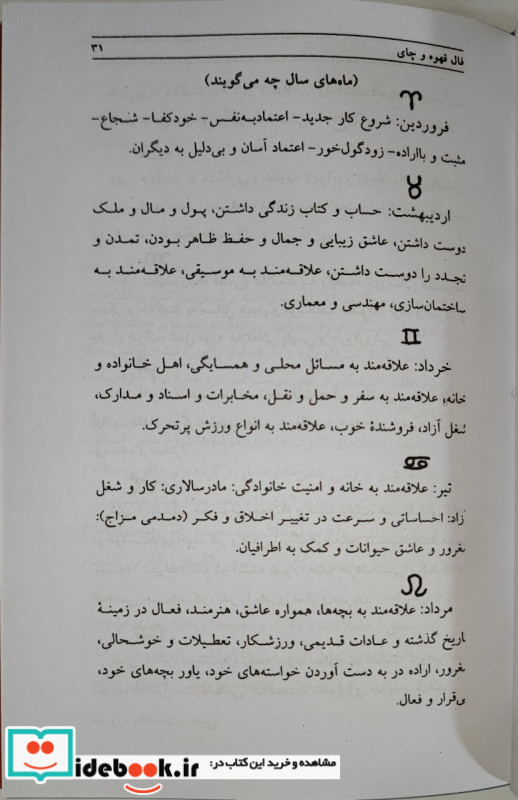 فال قهوه و چای
۳۱
(ماه‌های سال چه می‌گویند)
فروردین: شروع کار جدید- اعتمادبه‌نفس- خودکفا- شجاع-
مثبت و بااراده- زودگول‌خور- اعتماد آسان و بی‌دلیل به دیگران.
اردیبهشت: حساب و کتاب زندگی داشتن، پول و مال و ملک
دوست داشتن، عاشق زیبایی و جمال و حفظ ظاهر بودن، تمدن و
تجدد را دوست داشتن، علاقه‌مند به موسیقی، علاقه‌مند به
ساختمان‌سازی، مهندسی و معماری.
خرداد: علاقه‌مند به مسائل محلی و همسایگی، اهل خانواده و
خانه؛ علاقه‌مند به سفر و حمل و نقل، مخابرات و اسناد و مدارک،
شغل آزاد، فروشندهٔ خوب، علاقه‌مند به انواع ورزش پرتحرک.
تیر: علاقه‌مند به خانه و امنیت خانوادگی: مادرسالاری: کار و شغل
زاد: احساساتی و سرعت در تغییر اخلاق و فکر (دمدمی مزاج):
غرور و عاشق حیوانات و کمک به اطرافیان.
مرداد: علاقه‌مند به بچه‌ها، همواره عاشق، هنرمند، فعال در زمینهٔ
اریخ گذشته و عادات قدیمی، ورزشکار، تعطیلات و خوشحالی،
غرور، اراده در به دست آوردن خواسته‌های خود، یاور بچه‌های خود،
ی‌قرار و فعال.
مشاهده و خرید این کتاب در:
idebook.ir